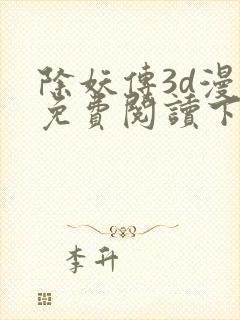 除妖傳3d漫
免費閱讀下
李升